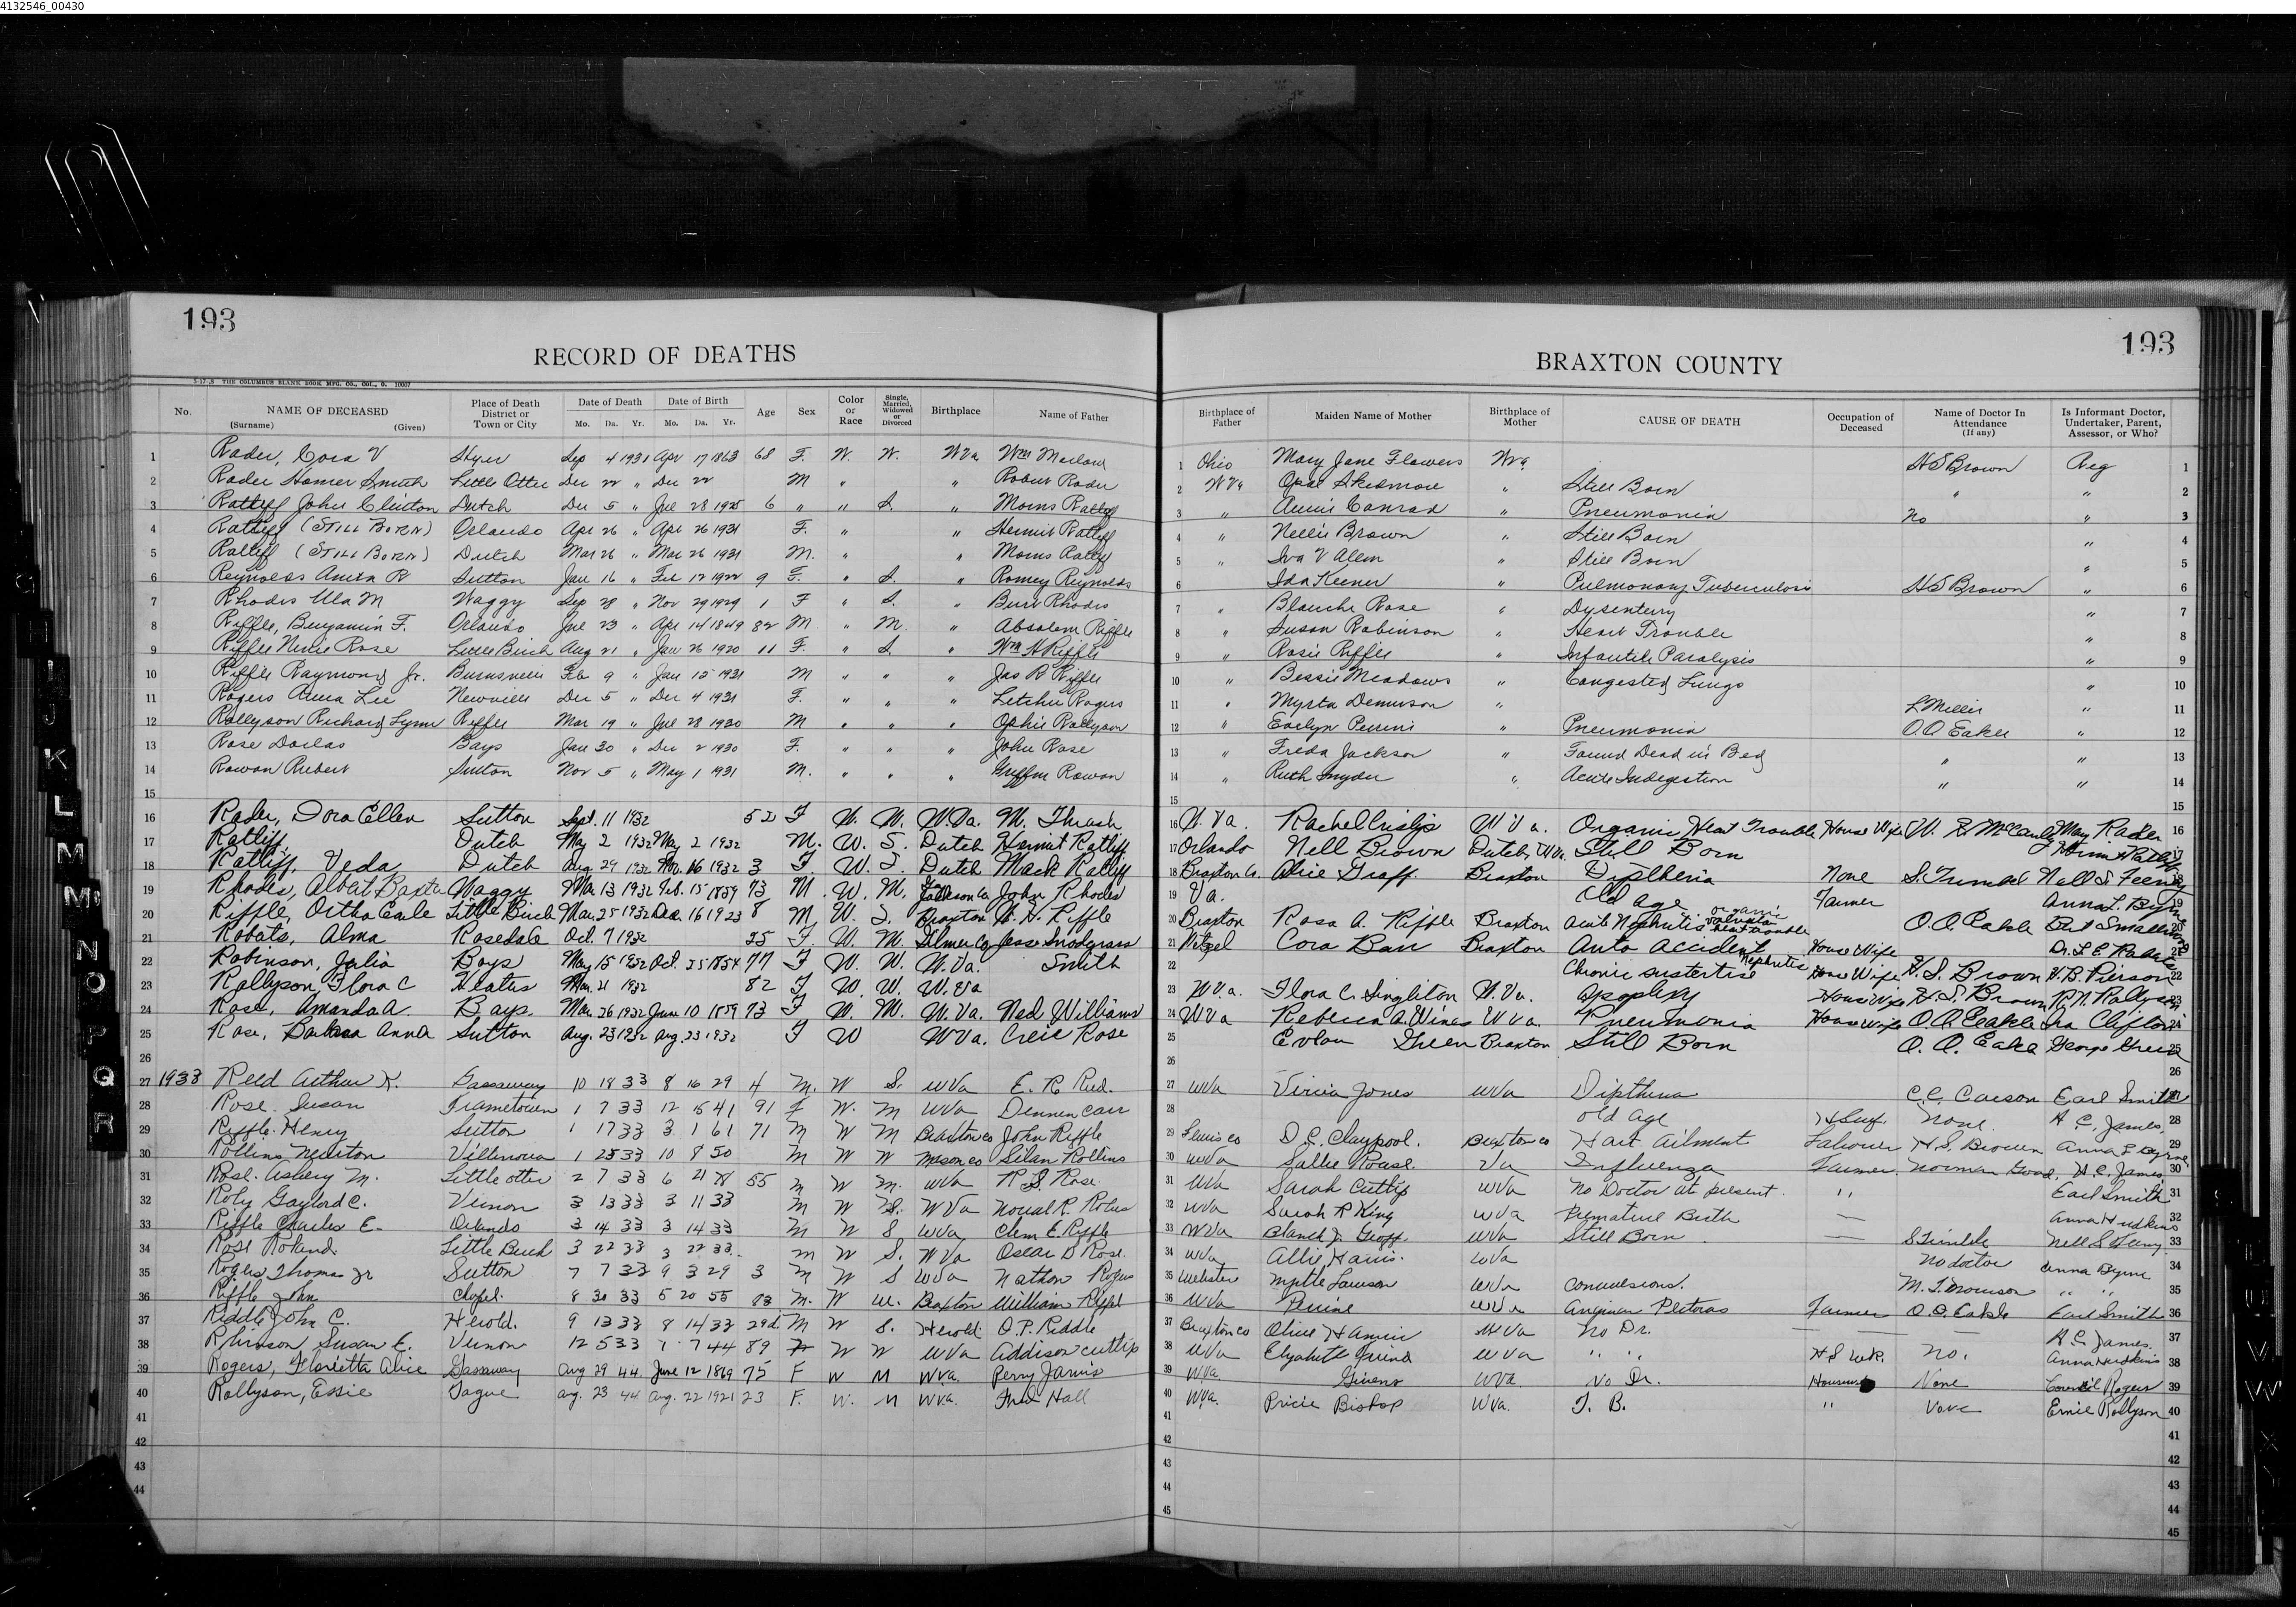 4132546_00430
193
RECORD OF DEATHS
5-17-8 THE COLUMBUS BLANK BOOK MFG. CO., COL., O. 10007
No. NAME OF DECEASED (Surname) (Given) Place of Death District or Town or City Date of Death Mo. Da. Yr. Date of Birth Mo. Da. Yr. Age Sex Color or Race Single, Married, Widowed or Divorced Birthplace Name of Father
1 Rader, Cora V Styer Sep 4 1931 Apr 17 1863 68 F. W. W. WVa Wm Marlow
2 Rader Homer Smith Little Otter Dec 22 " Dec 22 M " " Robert Rader
3 Ratliff John Clinton Dutch Dec 5 " Jul 28 1925 6 " " S. " Morris Ratliff
4 Ratliff (STILL BORN) Orlando Apr 26 " Apr 26 1931 F. " " Hermit Ratliff
5 Ratliff (STILL BORN) Dutch Mar 26 " Mar 26 1931 M. " " Morris Ratliff
6 Reynolds Anita R Sutton Jan 16 " Feb 12 1922 9 F. " S. " Romey Reynolds
7 Rhodes Ula M Waggy Sep 28 " Nov 29 1929 1 F " S. " Burt Rhodes
8 Riffle, Benjamin F. Orlando Jul 23 " Apr 14 1849 82 M " M. " Absalom Riffle
9 Riffle Rose Little Birch Aug 21 " Jan 26 1920 11 F. " S. " Wm H Riffle
10 Riffle Raymond Jr. Burnsville Feb 9 " Jan 15 1931 M " " " Jas R Riffle
11 Rogers Anna Lee Newville Dec 5 " Dec 4 1931 F. " " " Letcher Rogers
12 Rollyson Richard Lynn Riffle Mar 19 " Jul 28 1930 M " " " Ophie Rollyson
13 Rose Dorlas Bays Jan 30 " Dec 2 1930 F. " " " John Rose
14 Rowan Robert Sutton Nov 5 " May 1 1931 M. " " " Griffin Rowan
15
16 Rader, Dora Ellen Sutton Sept. 11 1932 52 F W. M. W.Va. M. Thrash
17 Ratliff, Dutch May 2 1932 May 2 1932 M. W. S. Dutch Hermit Ratliff
18 Ratliff, Veda Dutch Aug 29 1932 Nov. 16 1932 3 F. W. S. Dutch Mack Ratliff
19 Rhodes, Albert Baxter Waggy Mar 13 1932 Feb. 15 1859 73 M. W. M. Jackson Co John Rhodes
20 Riffle, Ortho Earle Little Birch Mar. 25 1932 Dec. 16 1923 8 M. W. S. Braxton W. H. Riffle
21 Robats, Alma Rosedale Oct. 7 1932 25 F. W. M. Gilmer Co Jesse Snodgrass
22 Robinson, Julia Bays May 15 1932 Oct. 25 1854 77 F W. W. W.Va. Smith
23 Rollyson, Flora C Heaters Mar. 21 1932 82 F W. W. W.Va
24 Rose, Amanda A. Bays Mar. 26 1932 June 10 1859 73 F W. M. W.Va. Ned Williams
25 Rose, Barbara Anna Sutton Aug. 23 1932 Aug. 23 1932 F W WVa. Creic Rose
26
27 1933 Reed Arthur K. Gassaway 10 18 33 8 16 29 4 M. W S. WVa E. R. Reed.
28 Rose. Susan Frametown 1 7 33 12 15 41 91 F W. M WVa Dennen Carr
29 Riffle. Henry Sutton 1 17 33 3 1 61 71 M W M Braxton co John Riffle
30 Rollins Newton Villanova 1 25 33 10 8 50 M W W Mason co Silan Rollins
31 Rose. Asbery M. Little otter 2 7 33 6 21 78 55 M W M. WVa R. S. Rose.
32 Roby Gaylord C. Vernon 3 13 33 3 11 33 M W S. W Va
33 Riffle Charles E. Orlando 3 14 33 3 14 33 M W S WVa Clem E. Riffle
34 Rose Roland. Little Buch 3 22 33 3 22 33. M W S. WVa Oscar D Rose.
35 Rogers Thomas Jr Sutton 7 7 33 9 3 29 3 M W S WVa Nathon Rogers
36 Riffle John Chapel. 8 30 33 5 20 55 83 M. W W. Braxton William Riffle
37 Riddle John C. Herold. 9 13 33 8 14 33 29d. M W S. Herold O. P. Riddle
38 Susan E. Vernon 12 5 33 7 7 44 89 W W WVa Addison Cutlip
39 Rogers, Florietta Alice Gassaway Aug 29 44 June 12 1869 75 F W M WVa. Perry Jarvis
40 Rollyson, Essie Tague Aug. 23 44 Aug. 22 1921 23 F. W. M WVa. Fred Hall
41
42
43
44
193
BRAXTON COUNTY
Birthplace of Father Maiden Name of Mother Birthplace of Mother CAUSE OF DEATH Occupation of Deceased Name of Doctor In Attendance (If any) Is Informant Doctor, Undertaker, Parent, Assessor, or Who?
1 Ohio Mary Jane Flowers Wva H S Brown Reg 1
2 W Va Opal Skidmore " Still Born " " 2
3 " Annie Conrad " Pneumonia No " 3
4 " Nellie Brown " Still Born " 4
5 " Iva V Allen " Still Born " 5
6 " Ida Keener " Pulmonary Tuberculosis H S Brown " 6
7 " Blanche Rose " Dysentery " 7
8 " Susan Robinson " Heart Trouble " 8
9 " Rosie Riffle " Infantile Paralysis " 9
10 " Bessie Meadows " Congested Lungs " 10
11 " Myrta Dennison " L Miller " 11
12 " Evelyn Perrine " Pneumonia O O Eakle " 12
13 " Freda Jackson " Found Dead in Bed " " 13
14 " Ruth Snyder " Acute Indigestion " " 14
15 15
16 W. Va. Rachel Crislip W Va. Organic Heat Trouble House Wife W. H. McCauley May Rader 16
17 Orlando Nell Brown Dutch, W Va. Still Born Ratliff
18 Braxton Co. Alice Graff. Braxton Diptheria None S. Trimble Nell S. Feeney
19 Va. Old Age Farmer Anna L. Byrne
20 Braxton Rosa A. Riffle Braxton Acute Nephritis organic valvular heat trouble O. O. Eakle Bert Smallwood
21 Wetzel Cora Barr Braxton Auto Accident House Wife
22 Chronic Nephritis House Wife H. S. Brown W. B. Pierson 22
23 W Va. Flora C. Singleton W. Va. Apoplexy House Wife H. S. Brown R. N. Rollyson
24 W Va Rebecca A. Wines W Va. Pneumonia House Wife O. O. Eakle Ira Clifton
25 Evlon Green Braxton Still Born O. O. Eakle George Green 25
26 26
27 WVa Vircia Jones WVa Dipthera C. C. Carson Earl Smith
28 old Age None. H C. James, 28
29 Lewis co D. C. Claypool. Braxton co Hart Ailment Labourer H. S. Brown Anna L Byrne 29
30 WVa Sallie Rouse. Va Influenza Farmer. Norman Good, H. C. James 30
31 WVa Sarah Cutlip WVa No Doctor at present. " Earl Smith 31
32 WVa Sarah R King WVa Premature Birth — Anna Hudkins 32
33 WVa Blanch J. Goff. WVa Still Born — S Trimble Nell S Feeny. 33
34 WVa Allie Harris. WVa No doctor Anna Byrne 34
35 Webster Myrtle Lawson WVa Convulsions. " " 35
36 WVa Perrine WVa Farmer O. O. Eakle Earl Smith 36
37 Braxton co Olive Hamric W Va No Dr. — — — H C. James. 37
38 WVa Elizabeth WVa " " H S Wk. No. Anna Hudkins 38
39 WVa. Givens WVa No Dr. Housewife None Rogers 39
40 WVa. Pricie Bishop WVa. T. B. " None Ernie Rollyson 40
41 41
42 42
43 43
44 44
45 45